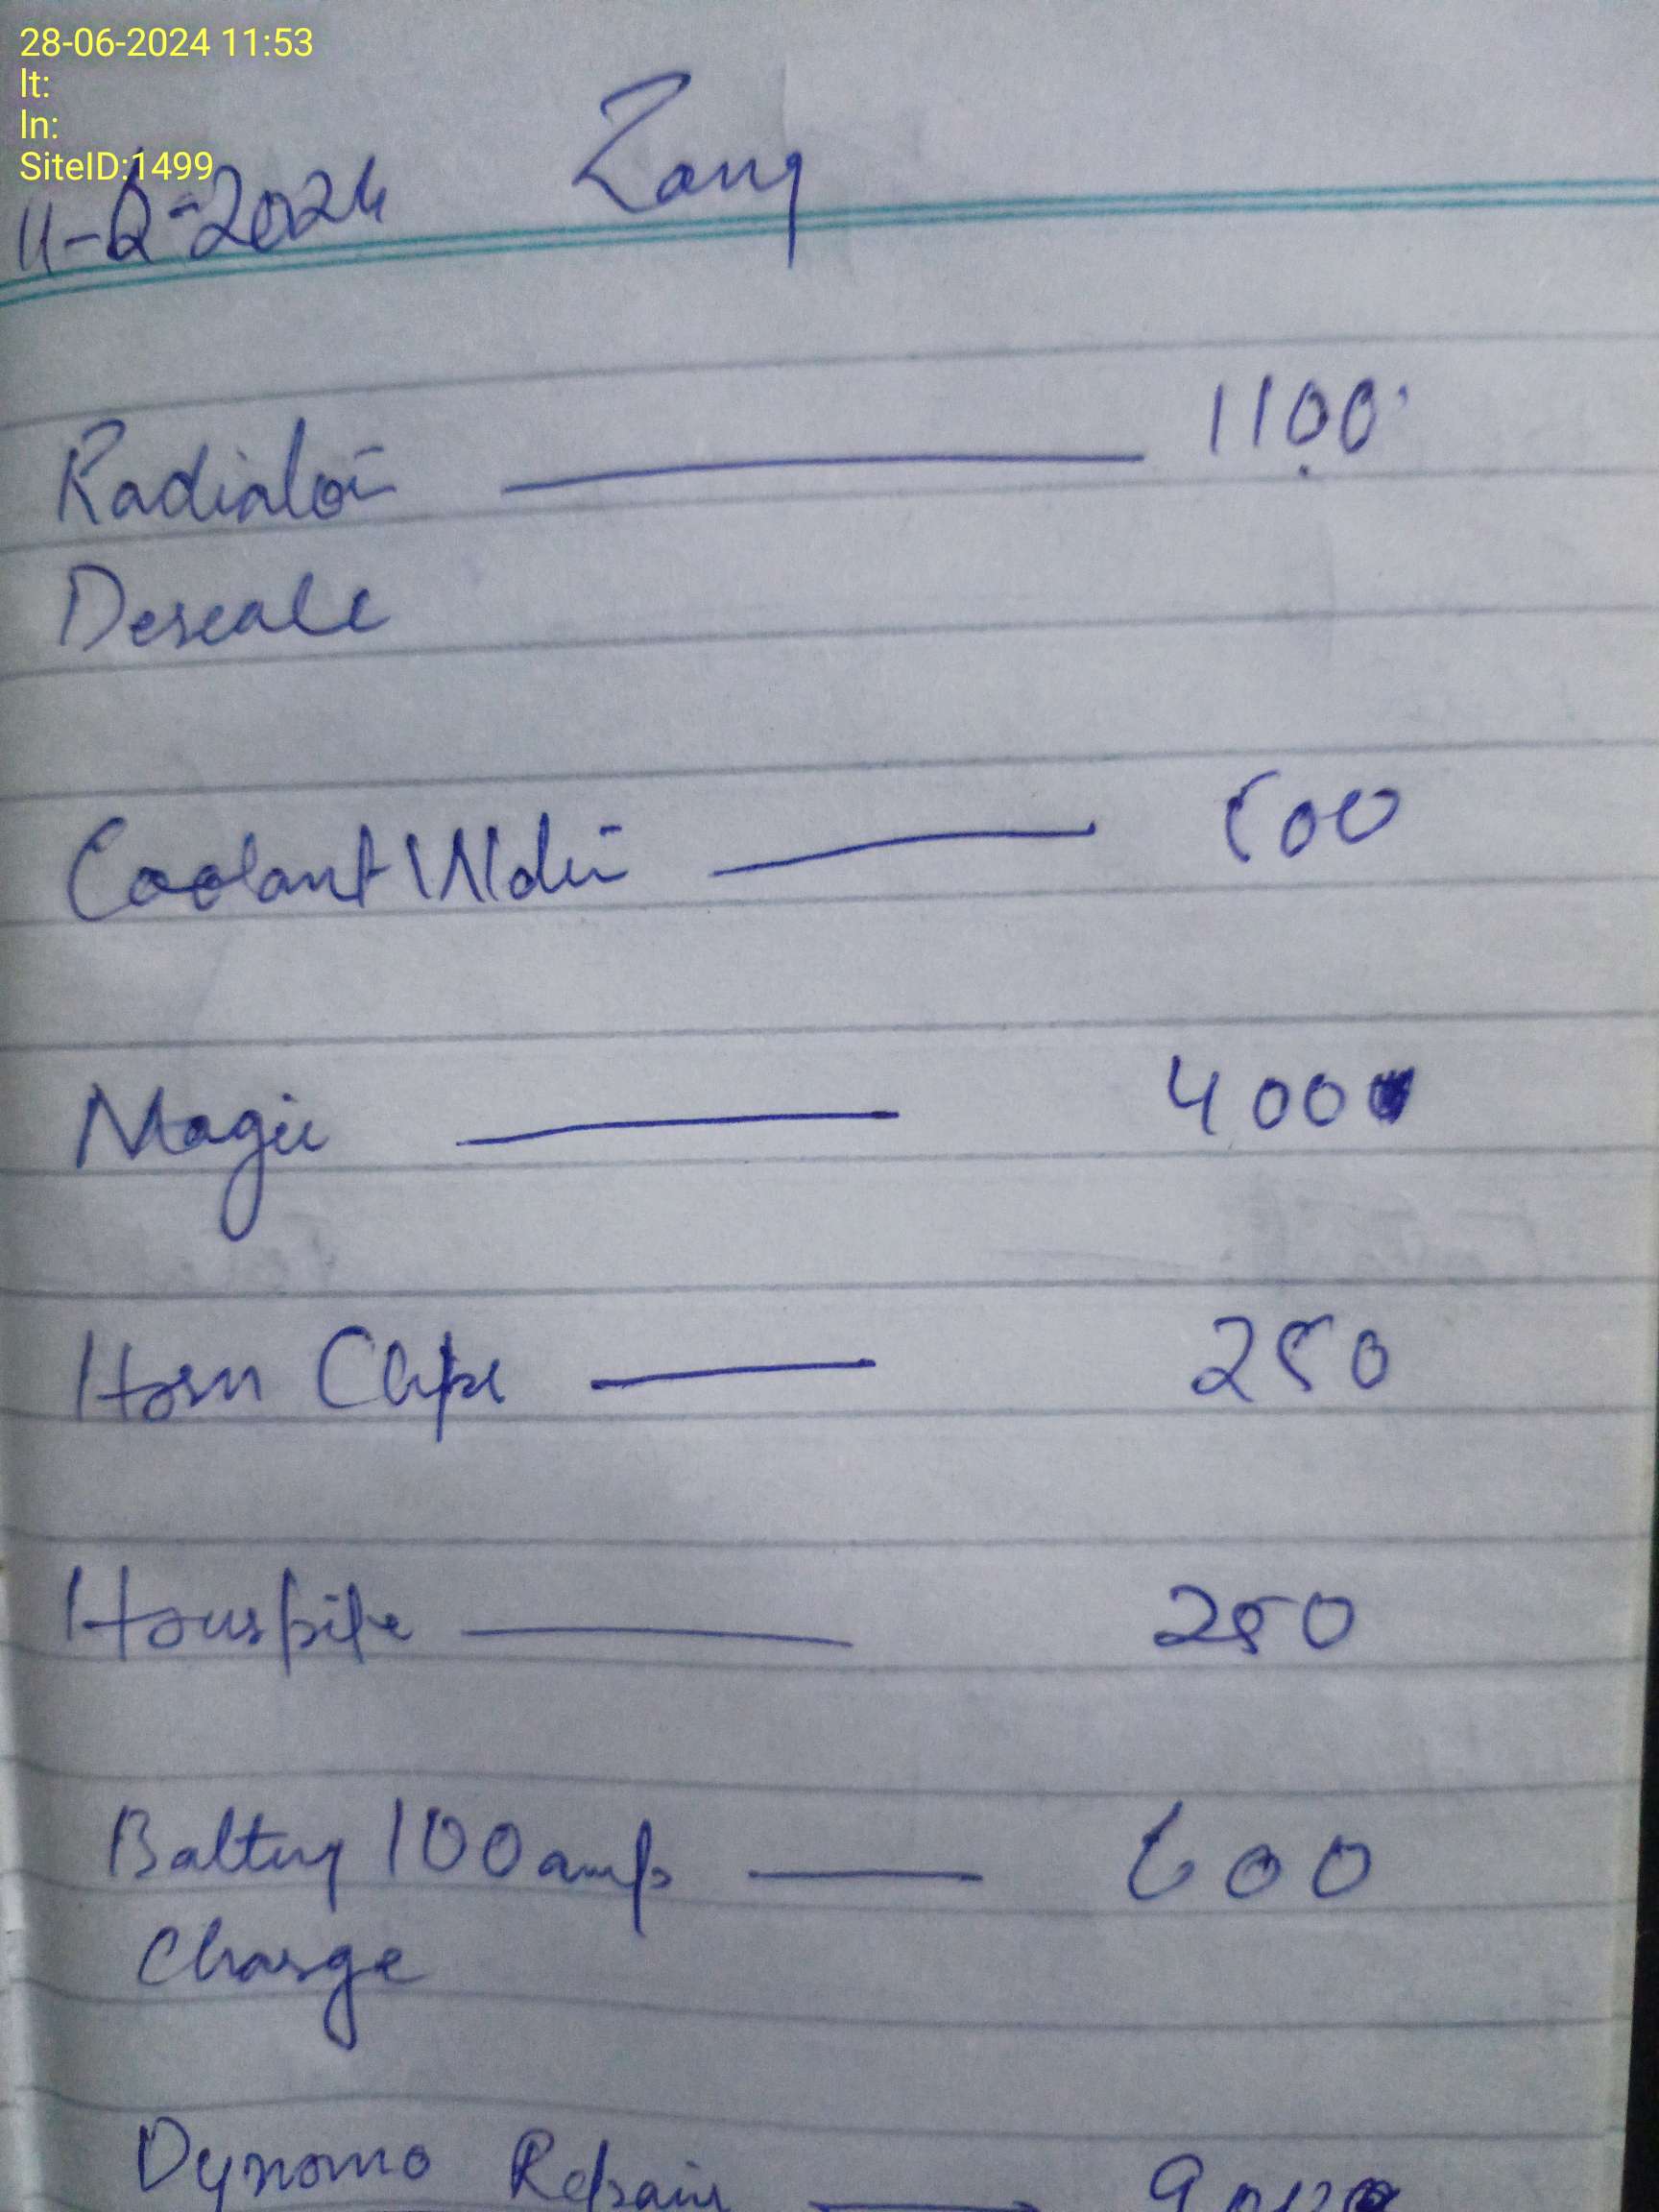 28-06-2024 11:53
lt:
ln:
SiteID:1499
11-6-2024 Zong
Radiator 1100
Descale
Coolant Water 500
Magic 4000
Horn Clips 250
Houspipe 250
Battery 100 amp 600
Charge
Dynomo Repair